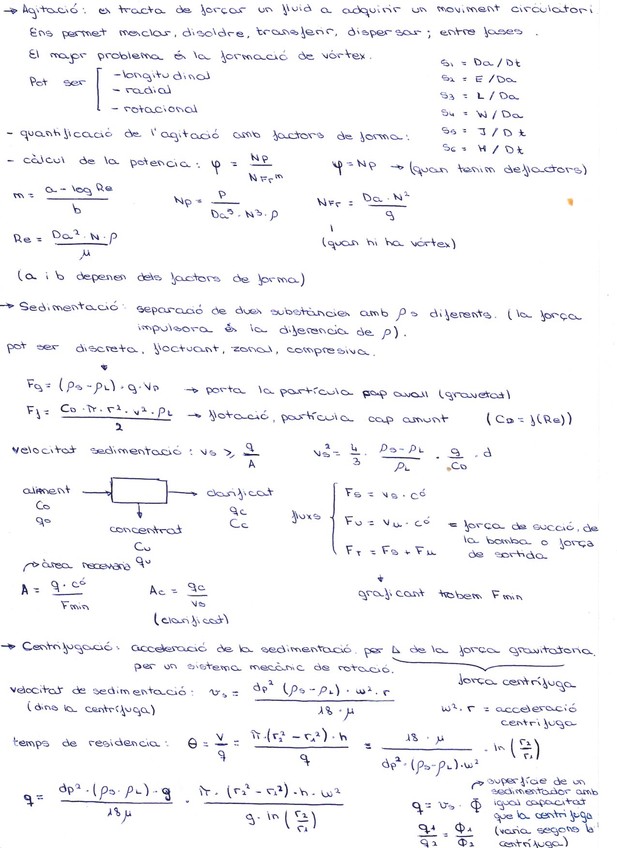 → Agitació: es tracta de forçar un fluid a adquirir un moviment circulatori.
Ens permet mesclar, disoldre, transferir, dispersar; entre fases.
El major problema és la formació de vórtex.
Pot ser - longitudinal
- radial
- rotacional
S₁ = Da/Dt
S₂ = E/Da
S₃ = L/Da
S₄ = W/Da
S₅ = J/Dt
S₆ = H/Dt
- quantificació de l'agitació amb factors de forma:
- càlcul de la potencia: φ = Np / N_Fr^m φ = Np → (quan tenim deflactors)
m = (a - log Re) / b Np = P / (Da⁵ · N³ · ρ) N_Fr = (Da · N²) / g
Re = (Da² · N · ρ) / μ (quan hi ha vórtex)
(a i b depenen dels factors de forma)
→ Sedimentació: separació de dues substàncies amb ρs diferents. (la força
impulsora és la diferencia de ρ).
pot ser discreta, floctuant, zonal, compresiva.
Fg = (ρs - ρL) · g · Vp → porta la partícula cap avall (gravetat)
Ff = (C_D · π · r² · v² · ρL) / 2 → flotació, partícula cap amunt (C_D = f(Re))
velocitat sedimentació: vs ≥ q/A vs² = 4/3 · (ρs - ρL)/ρL · g/C_D · d
aliment → → clarificat
Co qo
qc Cc
concentrat
Cu
qu
fluxs Fs = vs · có
Fu = vu · có = força de succió, de
la bomba o força
de sortida
FT = Fs + Fu
graficant trobem Fmin
→ àrea necessària
A = (q · có) / Fmin Ac = qc / vs
(clarificat)
→ Centrifugació: acceleració de la sedimentació, per Δ de la força gravitatoria,
per un sistema mecànic de rotació.
força centrífuga
velocitat de sedimentació: vs = (dp² (ρs - ρL) · ω² · r) / (18 · μ)
(dins la centrífuga)
ω² · r = acceleració
centrifuga
temps de residencia: θ = V/q = (π · (r₂² - r₁²) · h) / q = (18 · μ) / (dp² · (ρs - ρL) · ω²) · ln (r₂/r₁)
q = (dp² · (ρs - ρL) · g) / 18μ · (π · (r₂² - r₁²) · h · ω²) / (g · ln (r₂/r₁))
q = vs · Φ
q₁/q₂ = Φ₁/Φ₂
→ superfície de un
sedimentador amb
igual capacitat
que la centrífuga
(varia segons la
centrífuga)